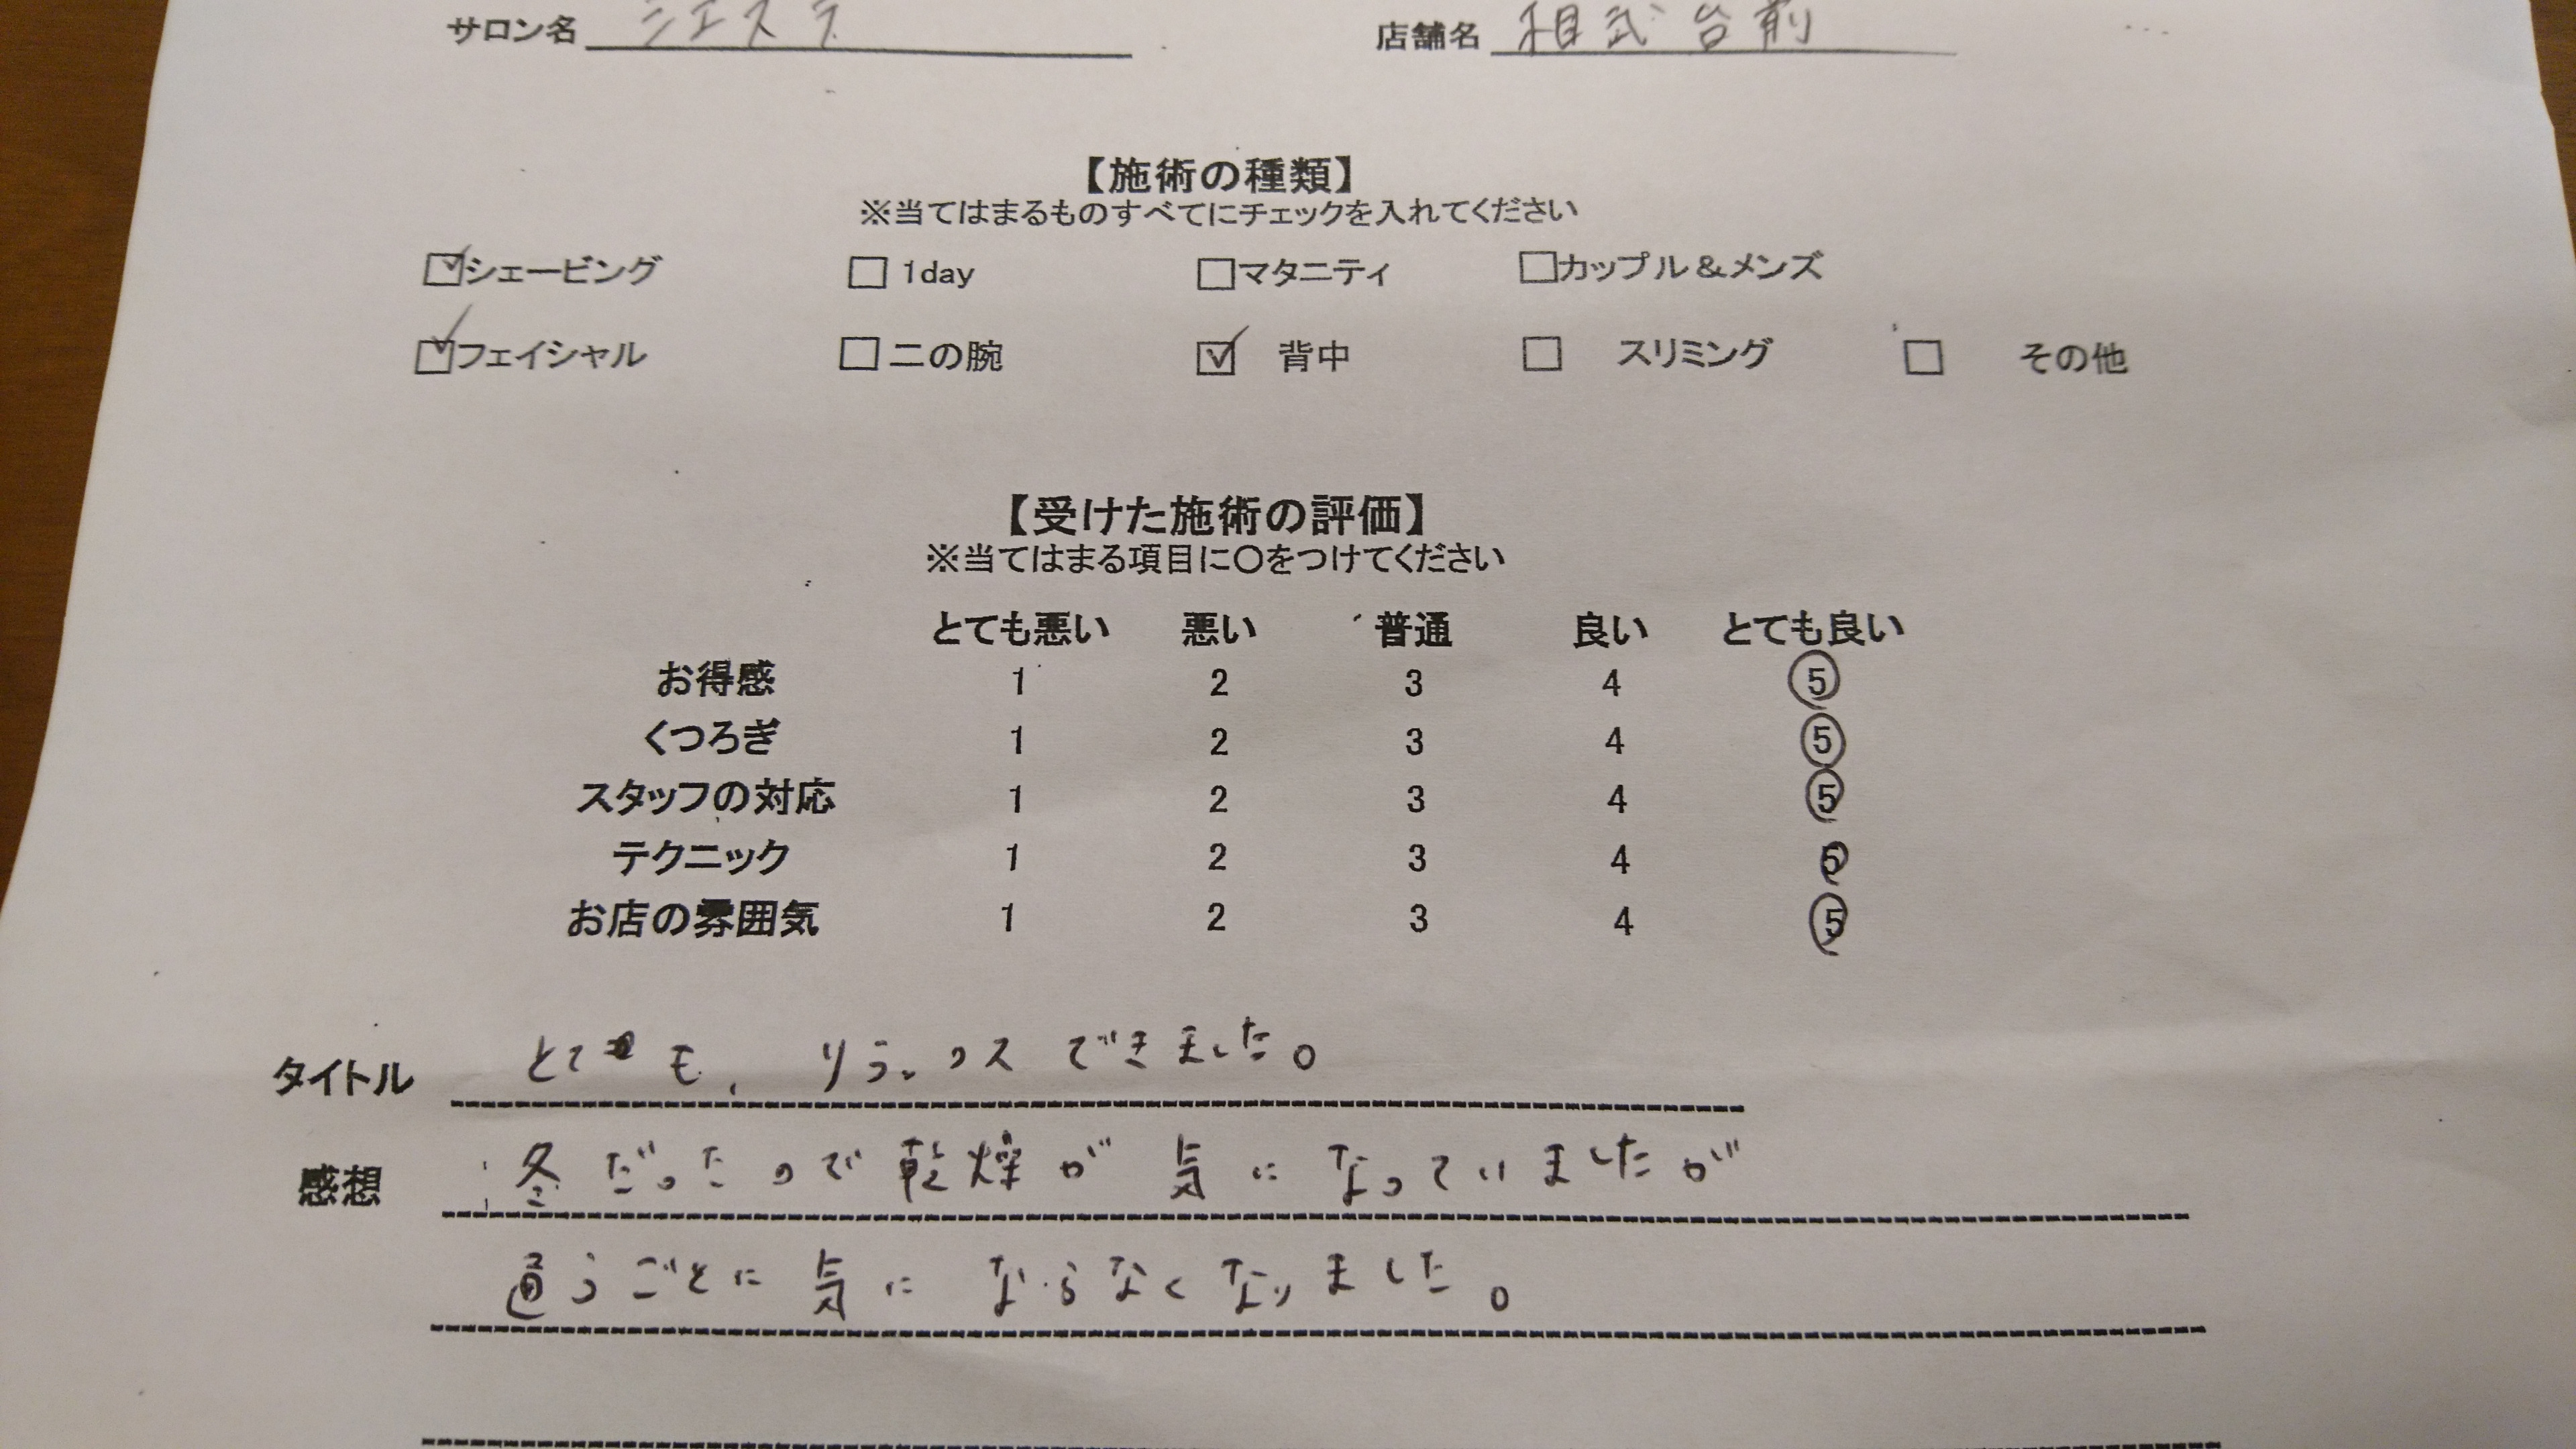 サロン名 シエスタ 店舗名 相武台前
【施術の種類】
※当てはまるものすべてにチェックを入れてください
☑シェービング □ 1day □マタニティ □カップル＆メンズ
☑フェイシャル □二の腕 ☑ 背中 □ スリミング □ その他
【受けた施術の評価】
※当てはまる項目に〇をつけてください
とても悪い 悪い 普通 良い とても良い
お得感 1 2 3 4 5
くつろぎ 1 2 3 4 5
スタッフの対応 1 2 3 4 5
テクニック 1 2 3 4 5
お店の雰囲気 1 2 3 4 5
タイトル とても、リラックスできました。
感想 冬だったので乾燥が気になっていましたが
通うごとに気にならなくなりました。